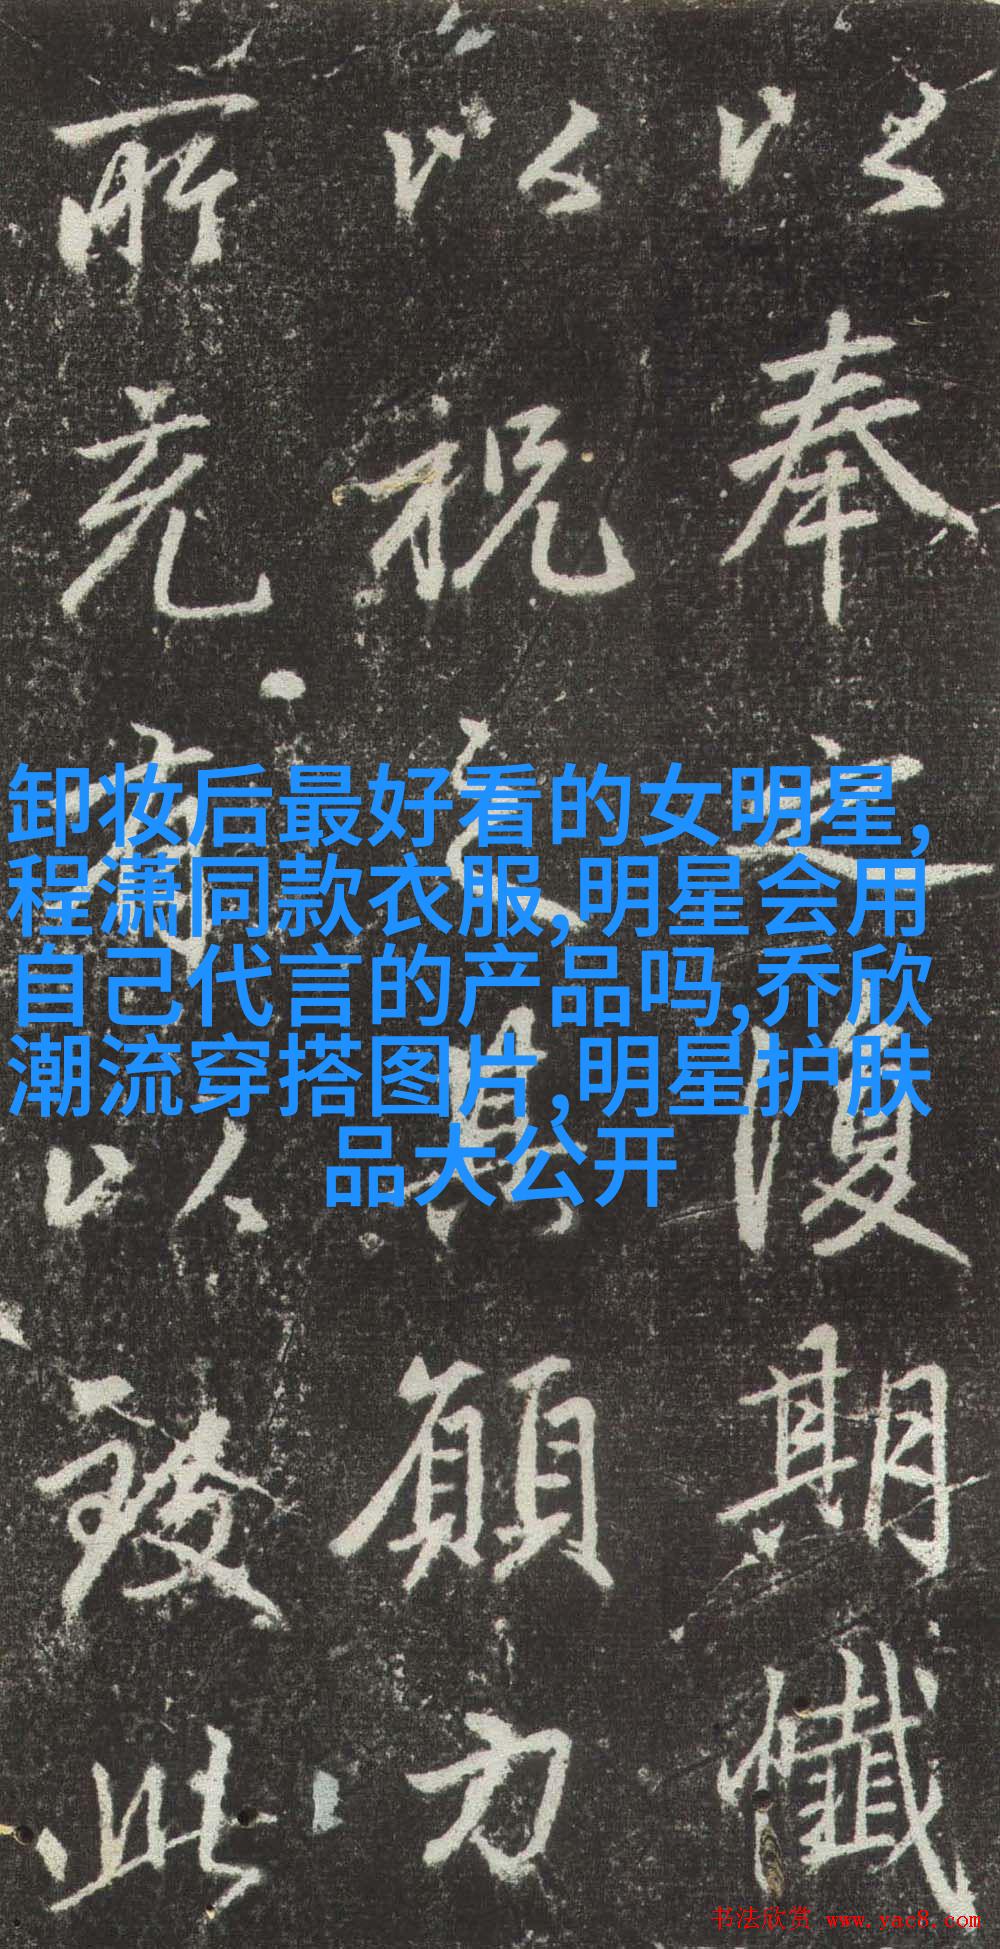 以奉復期懺
以祝願力
所以致此
卸妆后最好看的女明星,
程潇同款衣服,明星会用
自己代言的产品吗,乔欣
潮流穿搭图片,明星护肤
品大公开
书法欣赏 www.yac8.com